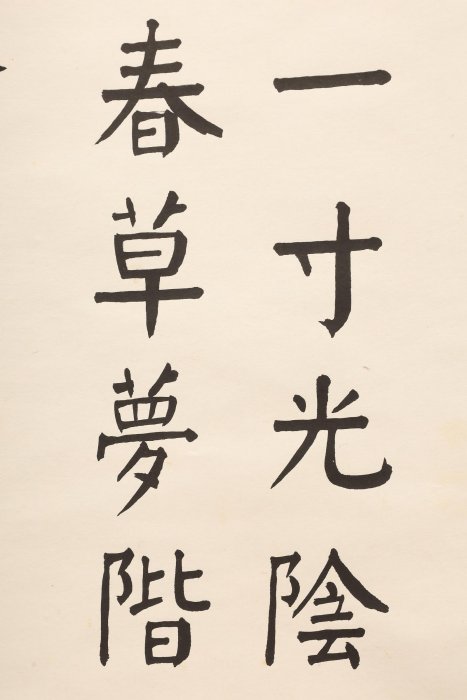 一寸光陰
春草夢階